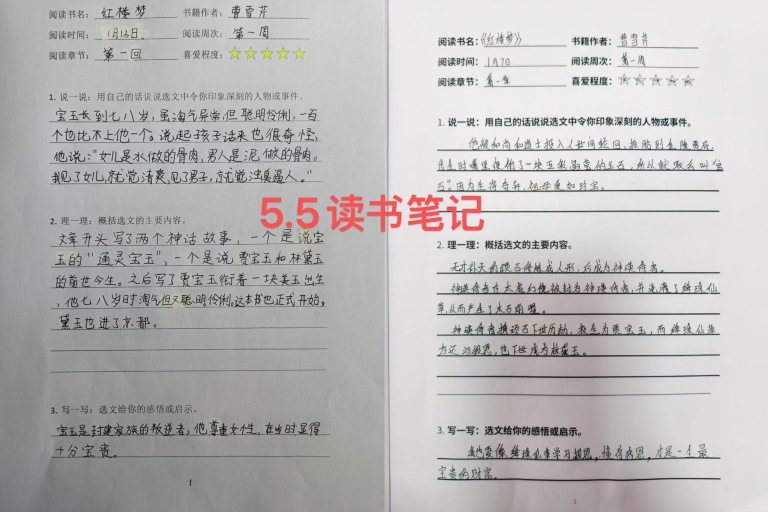 阅读书名： 红楼梦 书籍作者： 曹雪芹
阅读时间： 1月13日 阅读周次： 第一周
阅读章节： 第一回 喜爱程度：
1. 说一说：用自己的话说说选文中令你印象深刻的人物或事件。
宝玉长到七八岁，虽淘气异常，但聪明伶俐，一百
个也比不上他一个。说起孩子话来也很奇怪，
他说："女儿是水做的骨肉，男人是泥做的骨肉。
我见了女儿，就觉清爽，见了男子，就觉浊臭逼人。"
2. 理一理：概括选文的主要内容。
文章开头写了两个神话故事，一个是说宝
玉的"通灵宝玉"，一个是说贾宝玉和林黛玉
的前世今生。之后写了贾宝玉衔着一块美玉出生
，他七八岁时淘气但又聪明伶俐。这本书也正式开始，
黛玉也进了京都。
3. 写一写：选文给你的感悟或启示。
宝玉是封建家族的叛逆者，他尊重女性，在当时显得
十分宝贵。
1
5.5读书笔记
阅读书名：《红楼梦》 书籍作者： 曹雪芹
阅读时间： 1月7日 阅读周次： 第一周
阅读章节： 第一章 喜爱程度：
1. 说一说：用自己的话说说选文中令你印象深刻的人物或事件。
他被和尚和道士投入人世间轮回，投胎到金陵贾府，
出生时嘴里便衔了一块五彩晶莹的玉石，所以就取名叫"宝
玉"。因为生得奇异，祖母爱如珍宝。
2. 理一理：概括选文的主要内容。
无才补天的顽石修炼成人形，后成为神瑛侍者。
神瑛侍者在太虚幻境被封为神瑛侍者，并浇灌了绛珠仙
草，从而产生了木石前盟。
神瑛侍者携顽石下世历劫，投生为贾宝玉，而绛珠仙草
为还泪报恩，也下世成为林黛玉。
3. 写一写：选文给你的感悟或启示。
我们要像绛珠仙草学习报恩，懂得感恩，才是一个最
宝贵的财富。
1